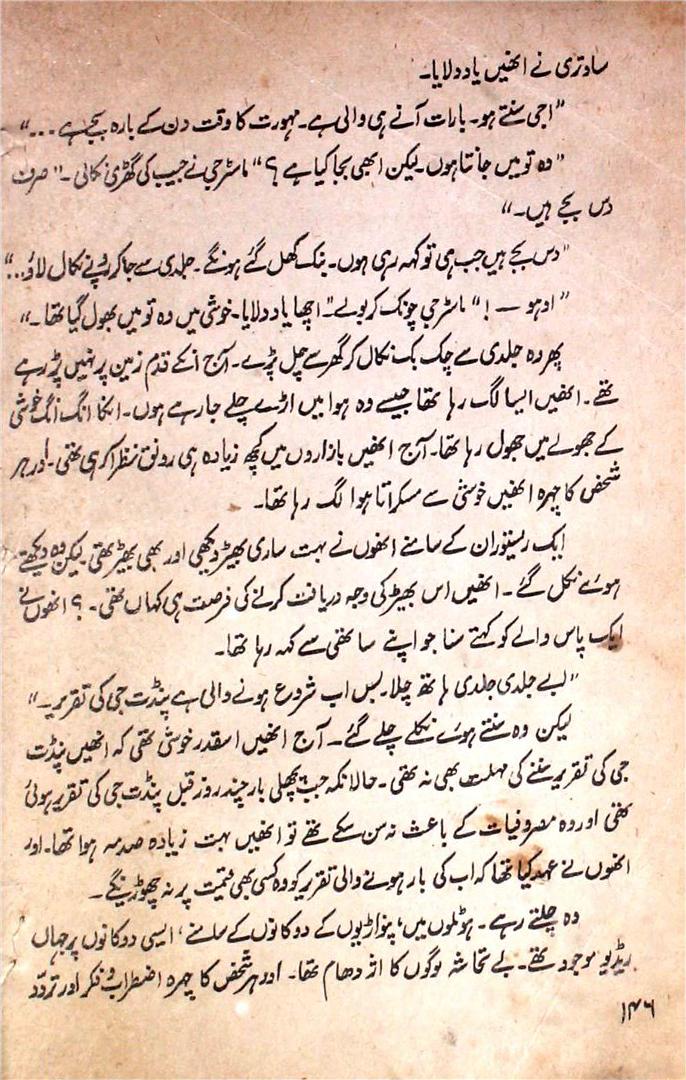 ساوتری نے انھیں یاد دلایا۔
"اجی سنتے ہو۔ بارات آنے ہی والی ہے۔ مہورت کا وقت دن کے بارہ بجے ہے ..."
"وہ تو میں جانتا ہوں۔ لیکن ابھی بجا کیا ہے؟" ماسٹر جی نے جیب کی گھڑی نکالی۔ "صرف
دس بجے ہیں۔"
"دس بجے ہیں جب ہی تو کہہ رہی ہوں۔ بنک کھل گئے ہونگے۔ جلدی سے جا کر روپئے نکال لاؤ..."
"اوہو — !" ماسٹر جی چونک کر بولے "اچھا یاد دلایا۔ خوشی میں وہ تو میں بھول گیا تھا۔"
پھر وہ جلدی سے چک بک نکال کر گھر سے چل پڑے۔ آج انکے قدم زمین پر نہیں پڑ رہے
تھے۔ انھیں ایسا لگ رہا تھا جیسے وہ ہوا میں اڑے چلے جا رہے ہوں۔ انکا انگ انگ خوشی
کے جھولے میں جھول رہا تھا۔ آج انھیں بازاروں میں کچھ زیادہ ہی رونق نظر آ رہی تھی۔ اور ہر
شخص کا چہرہ انھیں خوشی سے مسکراتا ہوا لگ رہا تھا۔
ایک ریستوران کے سامنے انھوں نے بہت ساری بھیڑ دیکھی اور بھی بھیڑ تھی لیکن وہ دیکھتے
ہوئے نکل گئے۔ انھیں اس بھیڑ کی وجہ دریافت کرنے کی فرصت ہی کہاں تھی۔؟ انھوں نے
ایک پاس والے کو کہتے سنا جو اپنے ساتھی سے کہہ رہا تھا۔
"ابے جلدی جلدی ہاتھ چلا۔ بس اب شروع ہونے والی ہے پنڈت جی کی تقریر۔"
لیکن وہ سنتے ہوئے نکلے چلے گئے۔ آج انھیں اسقدر خوشی تھی کہ انھیں پنڈت
جی کی تقریر سننے کی مہلت بھی نہ تھی۔ حالانکہ جب پچھلی بار چند روز قبل پنڈت جی کی تقریر ہوئی
تھی اور وہ مصروفیات کے باعث نہ سن سکے تھے تو انھیں بہت زیادہ صدمہ ہوا تھا۔ اور
انھوں نے عہد کیا تھا کہ اب کی بار ہونے والی تقریر کو وہ کسی بھی قیمت پر نہ چھوڑینگے۔
وہ چلتے رہے۔ ہوٹلوں میں، پنواڑیوں کے دوکانوں کے سامنے، ایسی دوکانوں پر جہاں
ریڈیو موجود تھے۔ بے تحاشہ لوگوں کا اژدھام تھا۔ اور ہر شخص کا چہرہ اضطراب و فکر اور تردّد
۱۴۶